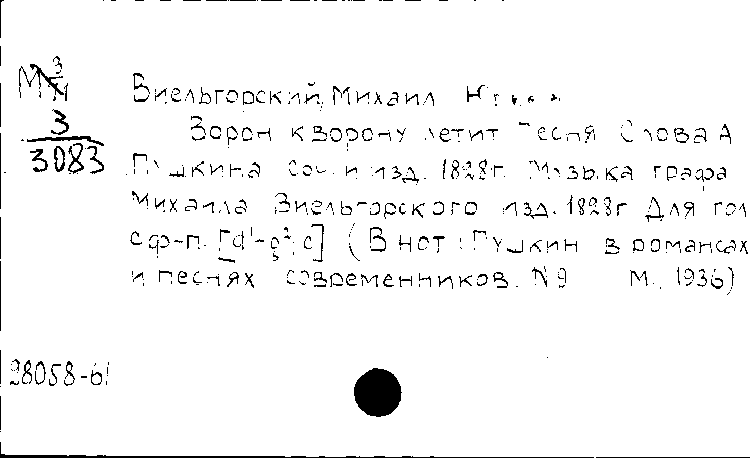 Виельгорский, Михаил
Ворон к ворону летит Песня Слова А
Пушкина соч. и изд. 1828г. Музыка графа
Михаила Виельгорского изд. 1828г Для гол
с ф-п. (В нот: Пушкин в романсах
и песнях современников. N9 М., 1936)
3
3083
28058-61